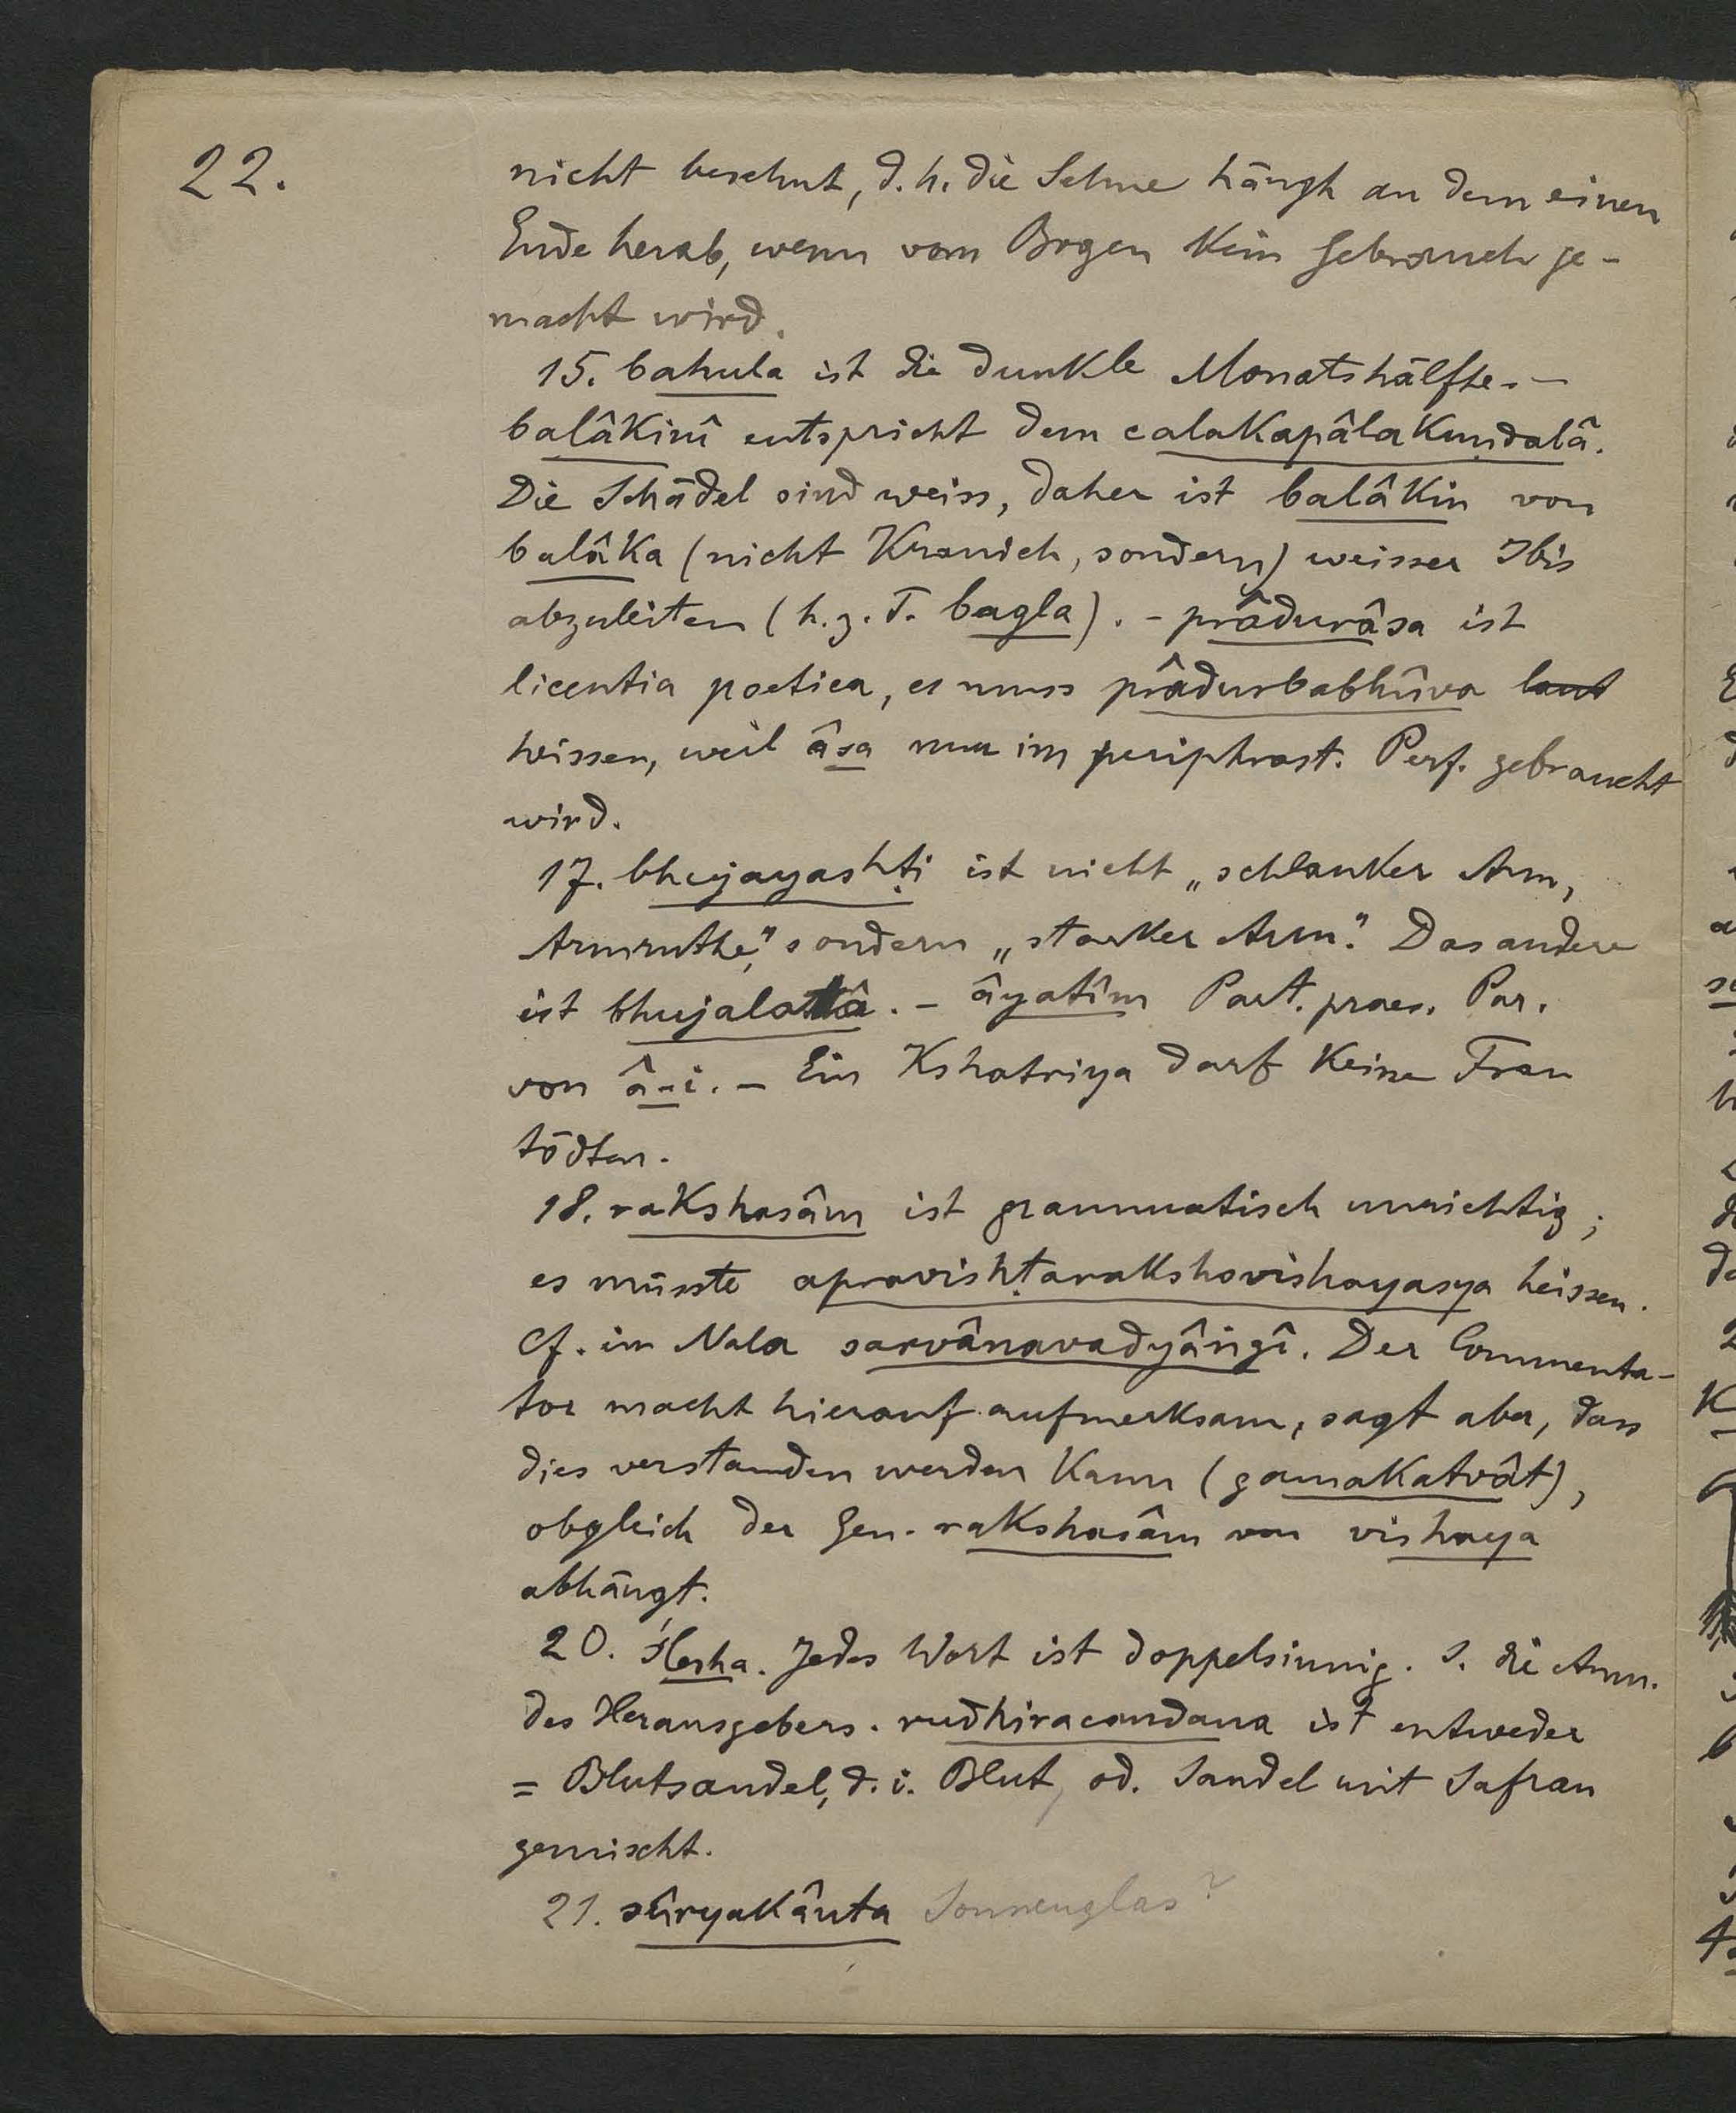 22.
nicht besehnt, d. h. die Sehne hängt an dem einen
Ende herab, wenn vom Bogen kein Gebrauch ge-
macht wird.
15. bahula ist die dunkle Monatshälfte. -
balâkinî entspricht dem calakapâlakuṇḍalâ.
Die Schädel sind weiss, daher ist balâkin von
balâka (nicht Kranich, sondern) weisser Ibis
abzuleiten (h. z. T. bagla). - prâdurâsa ist
licentia poetica, es muss prâdurbabhûva laut
heissen, weil âsa nur im periphrast. Perf. gebraucht
wird.
17. bhujayashṭi ist nicht „schlanker Arm,
Armruthe," sondern „starker Arm." Das andere
ist bhujalatâ. - âyatîm Part. praes. Par.
von â-i. - Ein Kshatriya darf keine Frau
tödten.
18. rakshasâm ist grammatisch unrichtig;
es müsste apravishṭarakshovishayasya heissen.
Cf. im Nala sarvânavadyângî. Der Commenta-
tor macht hierauf aufmerksam, sagt aber, dass
dies verstanden werden kann (gamakatvât),
obgleich der Gen. rakshasâm von vishaya
abhängt.
20. ślesha. Jedes Wort ist doppelsinnig. S. die Anm.
des Herausgebers. rudhiracandana ist entweder
= Blutsandel, d. i. Blut, od. Sandel mit Safran
gemischt.
21. sûryakânta Sonnenglas?